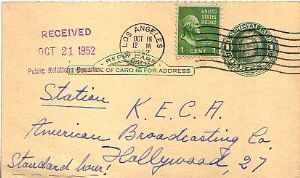 RECEIVED
OCT 21 1952
Public Relations
LOS ANGELES
OCT 16
12 M
1952
UNITED STATES
POSTAGE
1 CENT 1
OF CARD IS FOR ADDRESS
Station
K. E. C. A.
American Broadcasting Co.
Hollywood, 27
Standard hour!